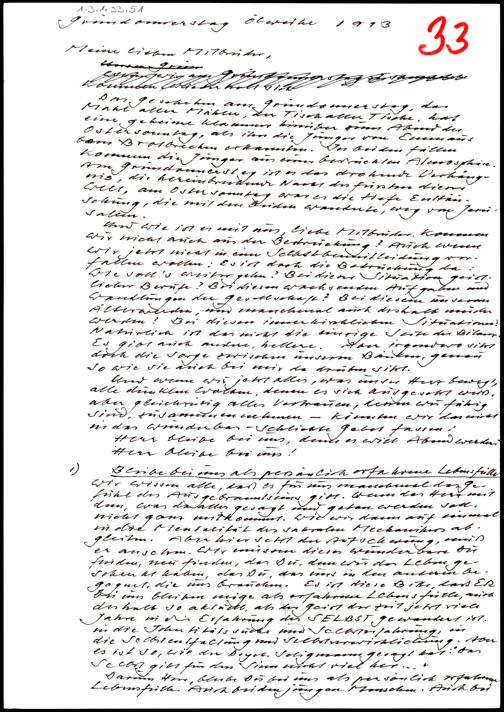 1.3.1.33.51
Gründonnerstag Ölweihe 1993
33
Meine lieben Mitbrüder,
Das Geschehen am Gründonnerstag, das
Mahl aller Mähler, der Tisch aller Tische, hat
eine geheime Klammer hinüber zum Abend des
Ostersonntag, als ihn die Jünger von Emmaus
beim Brotbrechen erkannten. In beiden Fällen
kommen die Jünger aus einer bedrückten Atmosphäre.
Am Gründonnerstag ist es das drohende Verhäng-
nis, die hereinbrechende Nacht des Fürsten dieser
Welt, am Ostersonntag war es die tiefe Enttäu-
schung, die mit den beiden wanderte, weg von Jeru-
salem.
Und wie ist es mit uns, liebe Mitbrüder. Kommen
wir nicht auch aus der Bedrückung? Auch wenn
wir jetzt nicht in eine Selbstbemitleidung ver-
fallen wollen. Es ist doch die Bedrückung da:
Wie soll's weitergehn? Bei dieser Situation geist-
licher Berufe? Bei diesen wachsenden Aufgaben und
Wandlungen der Gesellschaft? Bei diesem unserem
Älterwerden, und manchmal auch deshalb müder
werden? Bei diesen innerkirchlichen Situationen?
Natürlich ist das nicht die einzige Seite der Bilanz.
Es gibt auch andre, hellere. Aber irgendwo sitzt
doch die Sorge zwischen unseren Bänken, genau
so wie sie auch bei mir da droben sitzt.
Und wenn wir jetzt alles, was unser Herz bewegt,
alle dunklen Wolken, denen es sich ausgesetzt weiß,
aber gleichzeitig alles Vertrauen, dessen wir fähig
sind, zusammennehmen – könnten wir das nicht
in das wunderbar-schlichte Gebet fassen:
Herr bleibe bei uns, denn es will Abend werden
Herr bleibe bei uns!
1) Bleibe bei uns als persönlich erfahrene Lebensfülle
Wir wissen alle, daß es für uns manchmal das Ge-
fühl des Ausgebranntseins gibt. Wenn das Herz mit
dem, was da alles gesagt und getan werden soll,
nicht ganz mitkommt. Und wir dann auf einmal
in die Mentalität des sakralen Mechanikers ab-
gleiten. Aber hier setzt der Aufschwung, muß
er ansetzen. Wir müssen dieses wunderbare Du
finden, neu finden, das Du, dem wir das Leben ge-
schenkt haben, das Du, das uns in den andern be-
gegnet, die uns brauchen. Es ist die Bitte, daß ER
bei uns bleiben möge als erfahrene Lebensfülle, auch
deshalb so aktuell, als der Geist der Zeit jetzt viele
Jahre in die Erfahrung des SELBST gewandert ist.
in die Identitätssuche und Selbsterfahrung, in
die Selbstentfaltung und Selbstverwirklichung. Aber
es ist so, wie der Psych. gesagt hat: Das
Selbst gibt für den Sinn nicht viel her....
Darum Herr, bleibe Du bei uns als persönlich erfahrene
Lebensfülle. Auch bei den jungen Menschen. Auch bei